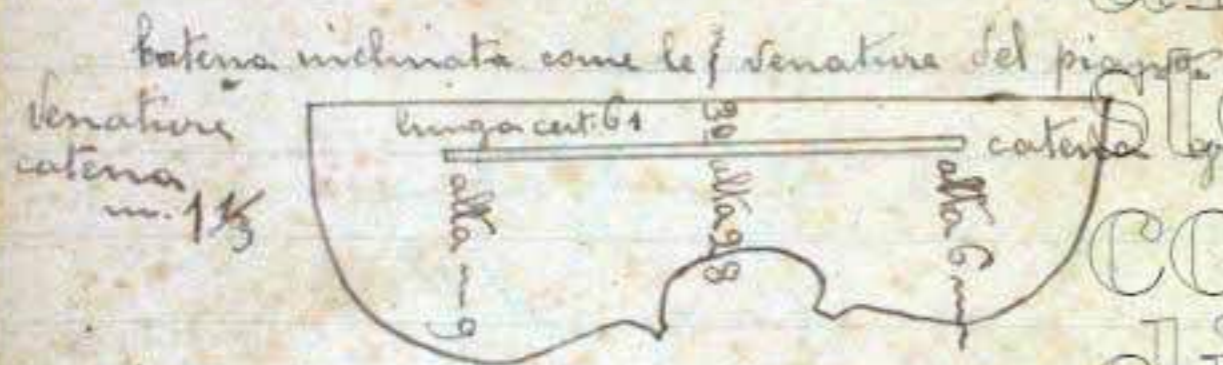 Catena inclinata come le venature del piano
Venature
catena
m. 1 1/3
lunga cent. 61
39
catena
alta m 9
alta 28
alta 6 m